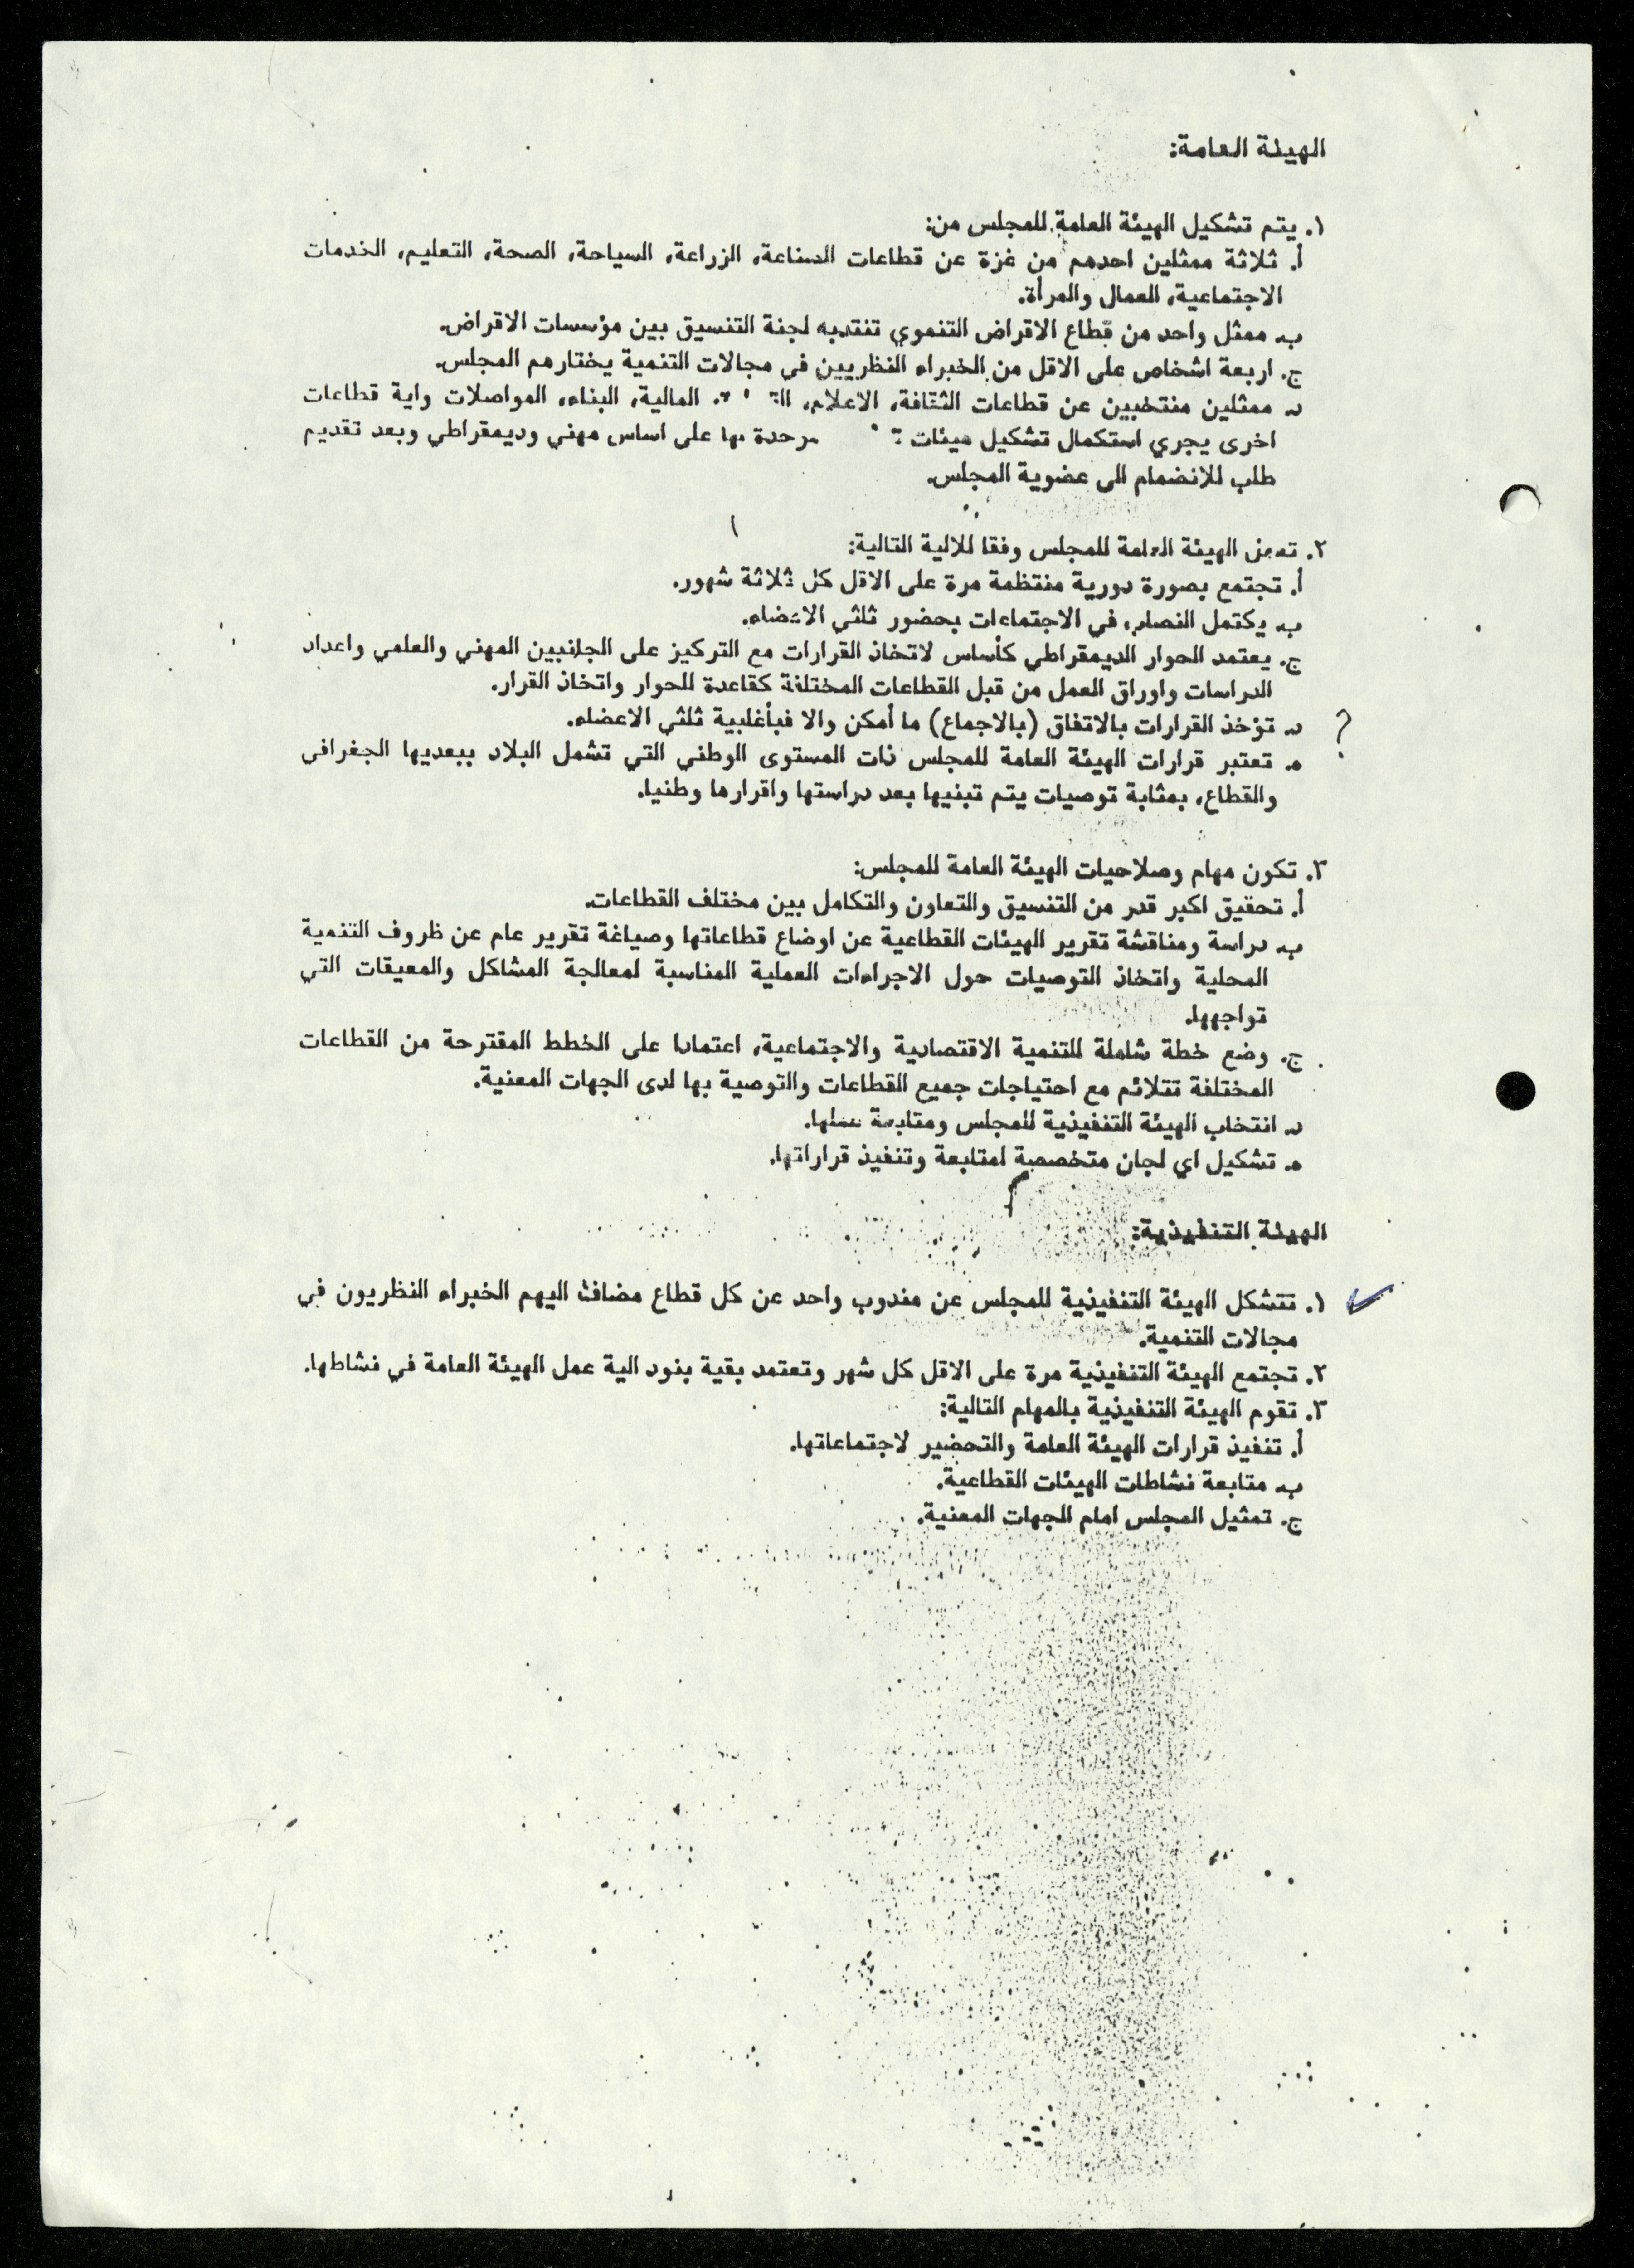 الهيئة العامة:
١. يتم تشكيل الهيئة العامة للمجلس من:
أ. ثلاثة ممثلين احدهم من غزة عن قطاعات الصناعة، الزراعة، السياحة، الصحة، التعليم، الخدمات
الاجتماعية، العمال والمرأة.
ب. ممثل واحد من قطاع الاقراض التنموي تنتدبه لجنة التنسيق بين مؤسسات الاقراض.
ج. اربعة اشخاص على الاقل من الخبراء النظريين في مجالات التنمية يختارهم المجلس.
د. ممثلين منتخبين عن قطاعات الثقافة، الاعلام، المالية، البناء، المواصلات واية قطاعات
اخرى يجري استكمال تشكيل هيئات موحدة لها على اساس مهني وديمقراطي وبعد تقديم
طلب للانضمام الى عضوية المجلس.
٢. تعمل الهيئة العامة للمجلس وفقا للالية التالية:
أ. تجتمع بصورة دورية منتظمة مرة على الاقل كل ثلاثة شهور.
ب. يكتمل النصاب في الاجتماعات بحضور ثلثي الاعضاء.
ج. يعتمد الحوار الديمقراطي كأساس لاتخاذ القرارات مع التركيز على الجانبين المهني والعلمي واعداد
الدراسات واوراق العمل من قبل القطاعات المختلفة كقاعدة للحوار واتخاذ القرار.
؟ د. تؤخذ القرارات بالاتفاق (بالاجماع) ما أمكن والا فبأغلبية ثلثي الاعضاء.
ه. تعتبر قرارات الهيئة العامة للمجلس ذات المستوى الوطني التي تشمل البلاد ببعديها الجغرافي
والقطاع، بمثابة توصيات يتم تبنيها بعد دراستها واقرارها وطنيا.
٣. تكون مهام وصلاحيات الهيئة العامة للمجلس:
أ. تحقيق اكبر قدر من التنسيق والتعاون والتكامل بين مختلف القطاعات.
ب. دراسة ومناقشة تقرير الهيئات القطاعية عن اوضاع قطاعاتها وصياغة تقرير عام عن ظروف التنمية
المحلية واتخاذ التوصيات حول الاجراءات العملية المناسبة لمعالجة المشاكل والمعيقات التي
تواجهها.
ج. وضع خطة شاملة للتنمية الاقتصادية والاجتماعية، اعتمادا على الخطط المقترحة من القطاعات
المختلفة تتلائم مع احتياجات جميع القطاعات والتوصية بها لدى الجهات المعنية.
د. انتخاب الهيئة التنفيذية للمجلس ومتابعة عملها.
ه. تشكيل اي لجان متخصصة لمتابعة وتنفيذ قراراتها.
الهيئة التنفيذية:
١. تتشكل الهيئة التنفيذية للمجلس عن مندوب واحد عن كل قطاع مضافا اليهم الخبراء النظريون في
مجالات التنمية.
٢. تجتمع الهيئة التنفيذية مرة على الاقل كل شهر وتعتمد بقية بنود الية عمل الهيئة العامة في نشاطها.
٣. تقوم الهيئة التنفيذية بالمهام التالية:
أ. تنفيذ قرارات الهيئة العامة والتحضير لاجتماعاتها.
ب. متابعة نشاطات الهيئات القطاعية.
ج. تمثيل المجلس امام الجهات المعنية.